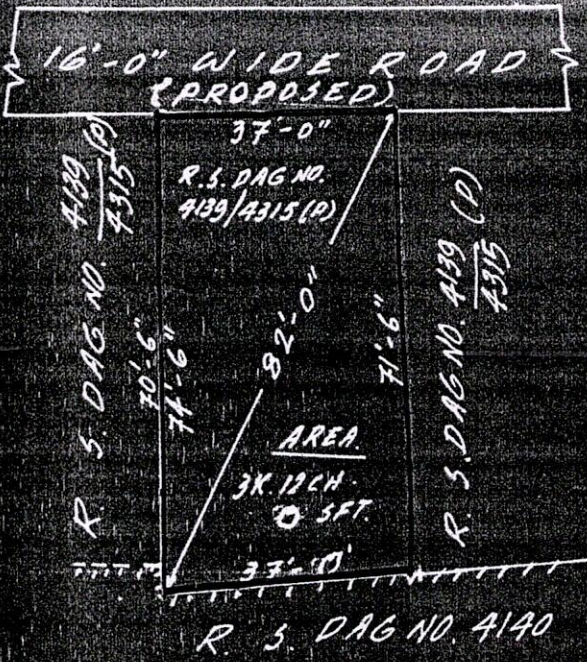 16'-0" WIDE ROAD
(PROPOSED)
37'-0"
R.S. DAG NO.
4139/4315 (P)
R. S. DAG NO. 4139/4315 (P)
70'-6"
74'-6"
82'-0"
71'-6"
R. S. DAG NO. 4139/4315 (P)
AREA
3K. 12CH.
0 SFT.
37'-0"
R. S. DAG NO. 4140